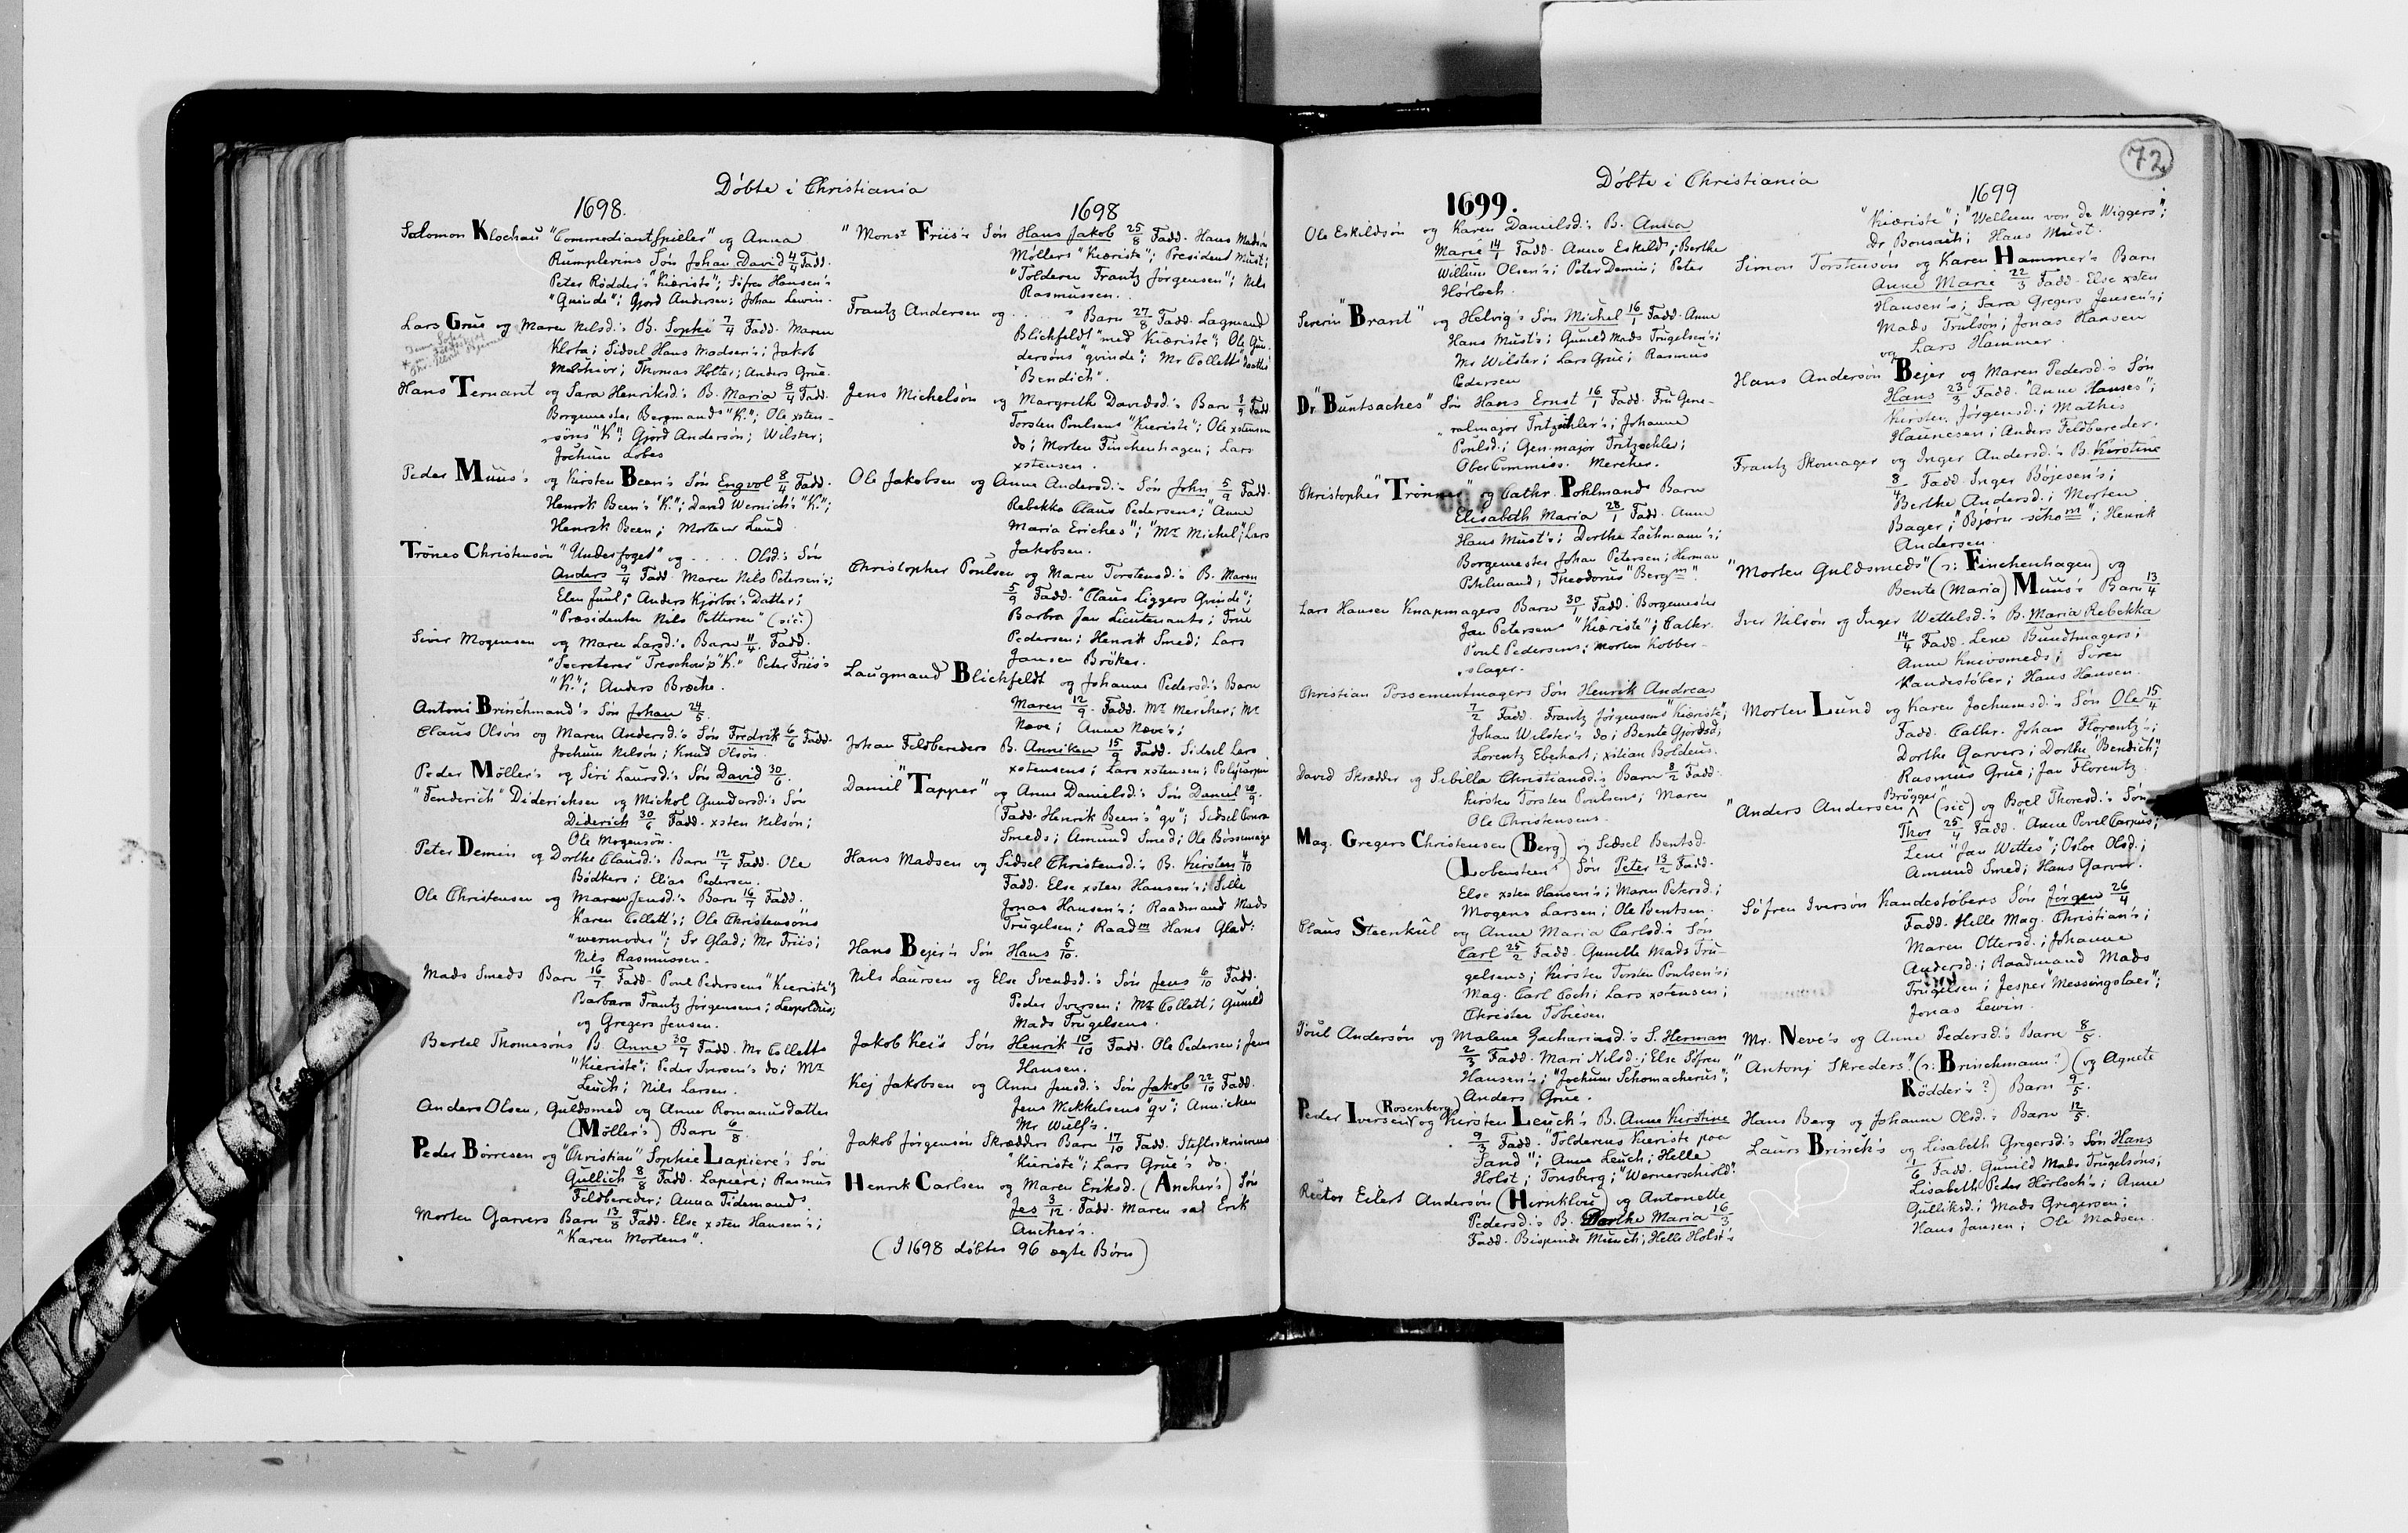 Døbte i Christiania
1698.
Salomon Klochau "Commediantspiller" og Anna
Rumplevins Søn Johan David 4/4 Fadd.
Peter Rødder's "Kiæriste"; Søfren Hansen's
"Quinde"; Gjord Andersen; Johan Lewin.
Lars Grue og Maren Nilsd.'s B. Sophi 7/4 Fadd. Maren
Klota; Sidsel Hans Madsen's; Jakob
Melchior; Thomas Holter; Anders Grue.
Hans Ternant og Sara Henriksd.'s B. Maria 8/4 Fadd.
Borgemester Bergmands "K."; Ole xsten-
søns "K"; Gjord Andersøn; Wilster;
Jochum Lobes
Peder Muus's og Kirsten Been's Søn Engvol 8/4 Fadd.
Henrik Been's "K."; David Wernich's "K.";
Henrik Been; Morten Lund
Trönes Christensøn "Underfoget" og ..... Olsd.'s Søn
Anders 9/4 Fadd. Maren Nils Petersen's;
Elen Juul; Anders Kjørboe's Datter;
"Præsidenten Nils Pettersen" (sic!)
Siver Mogensen og Maren Larsd.'s Barn 11/4. Fadd.
"Secreterer" Treschow's "K." Peter Friis's
"K."; Anders Bræcke.
Antoni Brinchmand's Søn Johan 24/5.
Claus Olsøn og Maren Andersd.'s Søn Fredrik 6/6 Fadd.
Jochum Nilsøn; Knud Olsøn
Peder Möller's og Siri Laursd.'s Søn David 30/6.
"Fenderich" Diderichsen og Michol Gundersd.'s Søn
Diderich 30/6 Fadd. xsten Nilsøn;
Ole Mogensøn.
Peter Demin og Dorthe Clausd.'s Barn 12/7 Fadd. Ole
Bødkers; Elias Pedersen.
Ole Christensen og Maren Jensd.'s Barn 16/7 Fadd.
Karen Collett's; Ole Christensøns
"wermoder"; Sr Glad; Mr Friis;
Nils Rasmussen.
Mads Smeds Barn 16/7 Fadd. Poul Pedersens "Kieriste";
Barbara Frantz Jørgensens; Leopoldus;
og Gregers Jensen.
Bertel Thomesøns B. Anne 30/7 Fadd. Mr Colletts
"Kieriste"; Peder Iversen's do; Mr
Leuch; Nils Larsen.
Anders Olsen, Guldsmed og Anne Romanusdatter
(Möller's) Barn 6/8.
Peder Börresen og "Christian" Sophie Lapiere's Søn
Gullich 8/8 Fadd. Lapiere; Rasmus
Feldbereder; Anna Tidemand
Morten Garvers Barn 13/8 Fadd. Else xsten Hansen's;
"Karen Mortens".
1698
"Monsr Friis's Søn Hans Jakob 25/8 Fadd. Hans Madsøn
Møllers "Kiæriste"; President Must;
"Tolderen Frantz Jørgensen"; Nils
Rasmussen.
Frantz Andersen og .....'s Barn 27/8 Fadd. Lagmand
Blichfeldt "med Kiæriste"; Ole Gun-
dersøns "qvinde"; Mr Collett; Dorthe
"Bendich".
Jens Michelsøn og Margreth Davidsd.'s Barn 3/9 Fadd.
Torsten Poulsens "Kieriste"; Ole xstensen
do; Morten Finchenhagen; Lars
xstensen.
Ole Jakobsen og Anne Andersd.'s Søn John 5/9 Fadd.
Rebekka Claus Pedersens; "Anne
Maria Eriches"; "Mr Michel"; Lars
Jakobsen.
Christopher Poulsen og Maren Torstensd.'s B. Maren
5/9 Fadd. "Claus Liggers Qvinde";
Barbra Jan Lieutenants; True
Pedersen; Henrik Smed; Lars
Jansen Bröker.
Laugmand Blichfeldt og Johanne Pedersd.'s Barn
Maren 12/9. Fadd. Mr Mercher; Mr
Næve; Anne Næve's;
Johan Feldbereders B. Anniken 15/9 Fadd. Sidsel Lars
xstensens; Lars xstensen; Polycarpus
Daniel "Tapper" og Anne Danielsd.'s Søn Daniel 20/9.
Fadd. Henrik Been's "qv"; Sidsel Conra
Smeds; Amund Smed; Ole Bøssemager
Hans Madsen og Sidsel Christensd.'s B. Kirsten 4/10
Fadd. Else xsten Hansen's; Sille
Jonas Hansen's; Raadmand Mads
Trugelsen; Raadm Hans Glad:
Hans Bejer's Søn Hans 5/10.
Nils Laursen og Else Svendsd.'s Søn Jens 6/10 Fadd.
Peder Iversen; Mr Collett; Gunild
Mads Trugelsens.
Jakob Kei's Søn Henrik 10/10 Fadd. Ole Pedersen; Jens
Hansen.
Kej Jakobsen og Anne Jensd.'s Søn Jakob 22/10 Fadd.
Jens Mekkelsens "qv"; Annicken
Mr Wulf's.
Jakob Jørgensøn Skrædders Barn 17/10 Fadd. Stiftsskriverens
"Kieriste"; Lars Grue's do.
Henrik Carlsen og Maren Eriksd. (Ancher's) Søn
Jes 3/12. Fadd. Maren sal Erik
Ancher's.
(I 1698 døbtes 96 ægte Børn)
72
Døbte i Christiania
1699.
Ole Eskildsøn og Karen Danielsd.'s B. Anna
Marie 14/1 Fadd. Anne Eskilds; Berthe
Willum Olsen's; Peter Demin; Peter
Hörloch.
Severin "Brant" og Helvig's Søn Michel 16/1 Fadd. Anne
Hans Must's; Gunild Mads Trugelsen's;
Mr Wilster; Lars Grue; Rasmus
Pedersen
Dr "Buntsaches" Søn Hans Ernst 16/1 Fadd. Fru Gene-
ralmajor Tritzschler's; Johanne
Poulsd.; Gen.major Tritzschler;
OberCommiss. Mercher.
Christopher "Trönner" og Cathr. Pohlmands Barn
Elisabeth Maria 28/1 Fadd. Anne
Hans Must's; Dorthe Lachmann's;
Borgemester Johan Petersen; Herman
Pohlmand; Theodorus "Bergm".
Lars Hansen Knapmagers Barn 30/1 Fadd. Borgemester
Jan Petersens "Kiæriste"; Cathr.
Poul Pedersens; Morten Kobber-
slager.
Christian Possementmagers Søn Henrik Andreas
7/2 Fadd. Frantz Jørgensens "Kiæriste";
Johan Wilster's do; Bente Gjordsd;
Lorentz Eberhart; xstian Boldeus.
David Skrædder og Sibilla Christiansd.'s Barn 8/2 Fadd.
Kirsten Torsten Poulsens; Maren
Ole Christensens.
Mag. Gregers Christensen (Berg) og Sidsel Bentsd.
(Lobensteens) Søn Peter 13/2 Fadd.
Else xsten Hansen's; Maren Petersd.;
Mogens Larsen; Ole Bentsen.
Claus Steenkul og Anne Maria Carlsd.'s Søn
Carl 25/2 Fadd. Gunille Mads Tru-
gelsens; Kirsten Torsten Poulsen's;
Mag. Carl Coch; Lars xstensen;
Christen Tobiesen
Poul Andersøn og Malene Zachariasd.'s S. Herman
2/3 Fadd. Mari Nilsd.; Else Søfren
Hansen's; "Jochum Schomacherus";
Anders Grue.
Peder Iversen (Rosenberg) og Kirsten Leuch's B. Anne Kirstine
9/3 Fadd. "Tolderens Kieriste paa
Sand"; Anne Leuch; Helle
Holst; Tonsberg; "Wernerschiold".
Rector Eilert Andersøn (Hirnklou) og Antonette
Pedersd.'s B. Dorthe Maria 16/3
Fadd. Bispinde Munch; Helle Holst's
1699
"Kiæriste"; "Wellum von de Wiggers";
Dr Bonsach; Hans Must.
Simon Torstensøn og Karen Hammer's Barn
Anne Marie 22/3 Fadd. Else xsten
Hansen's; Sara Gregers Jensen's;
Mads Trulsøn; Jonas Hansen
og Lars Hammer.
Hans Andersøn Bejer og Maren Pedersd.'s Søn
Hans 23/3 Fadd. "Anne Hanses";
Kirsten Jørgensd.; Mathis
Hannesen; Anders Feldbereder.
Frantz Skomager og Inger Andersd.'s B. Kirstine
8/4 Fadd. Inger Böjesen's;
Berthe Andersd.; Morten
Bager; "Bjørn schom"; Henrik
Andersen.
"Morten Guldsmeds" (ɔ: Finchenhagen) og
Bente (Maria) Muus's Barn 13/4
Iver Nilsøn og Inger Wettelsd.'s B. Maria Rebekka
14/4 Fadd. Lene Bundtmagers;
Anne Knivsmeds; Søren
Kandestöber; Hans Hansen.
Morten Lund og Karen Jochumsd.'s Søn Ole 15/4
Fadd. Cathr. Johan Florentz's;
Dorthe Garvers; Dorthe "Bendich";
Rasmus Grue; Jan Florentz
"Anders Andersen Brögger" (sic) og Boel Thoresd.'s Søn
Thor 25/4 Fadd. "Anne Povel Carpus;
Lene "Jan Wittes"; Osloe Olsd.;
Amund Smed; Hans Garver.
Söfren Iversøn Kandestöbers Søn Jørgen 26/4
Fadd. Helle Mag. Christian's;
Maren Ottersd.; Johanne
Andersd.; Raadmand Mads
Trugelsen; Jesper "Messingslaer";
Jonas Lewin.
Mr. Neve's og Anne Pedersd.'s Barn 8/5.
"Antonj Skreders" (ɔ: Brinchmann?) (og Agnete
Rödder's?) Barn 9/5.
Hans Berg og Johanne Olsd.'s Barn 12/5.
Laurs Brinck's og Lisabeth Gregersd.'s Søn Hans
1/6 Fadd. Gunild Mads Trugelsøns;
Lisabeth Peder Hörloch's; Anne
Gulliksd.; Mads Gregersen;
Hans Jansen; Ole Madsen.